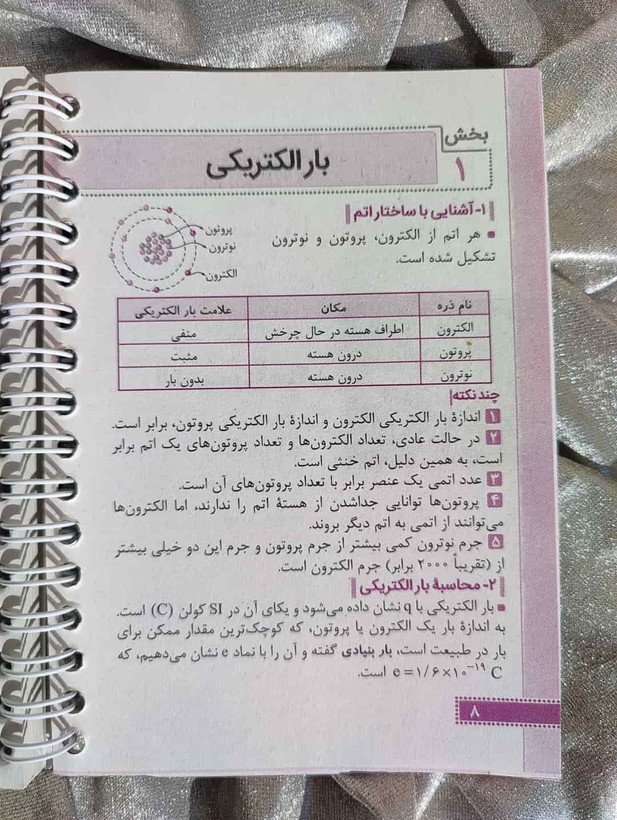 بخش
۱
بار الکتریکی
۱- آشنایی با ساختار اتم
■ هر اتم از الکترون، پروتون و نوترون
تشکیل شده است.
پروتون
نوترون
الکترون
نام ذره مکان علامت بار الکتریکی
الکترون اطراف هسته در حال چرخش منفی
پروتون درون هسته مثبت
نوترون درون هسته بدون بار
چند نکته
۱ اندازهٔ بار الکتریکی الکترون و اندازهٔ بار الکتریکی پروتون، برابر است.
۲ در حالت عادی، تعداد الکترون‌ها و تعداد پروتون‌های یک اتم برابر
است، به همین دلیل، اتم خنثی است.
۳ عدد اتمی یک عنصر برابر با تعداد پروتون‌های آن است.
۴ پروتون‌ها توانایی جداشدن از هستهٔ اتم را ندارند، اما الکترون‌ها
می‌توانند از اتمی به اتم دیگر بروند.
۵ جرم نوترون کمی بیشتر از جرم پروتون و جرم این دو خیلی بیشتر
از (تقریباً ۲۰۰۰ برابر) جرم الکترون است.
۲- محاسبهٔ بار الکتریکی
■ بار الکتریکی با q نشان داده می‌شود و یکای آن در SI کولن (C) است.
به اندازهٔ بار یک الکترون یا پروتون، که کوچک‌ترین مقدار ممکن برای
بار در طبیعت است، بار بنیادی گفته و آن را با نماد e نشان می‌دهیم، که
e = ۱/۶×۱۰⁻¹⁹ C است.
۸